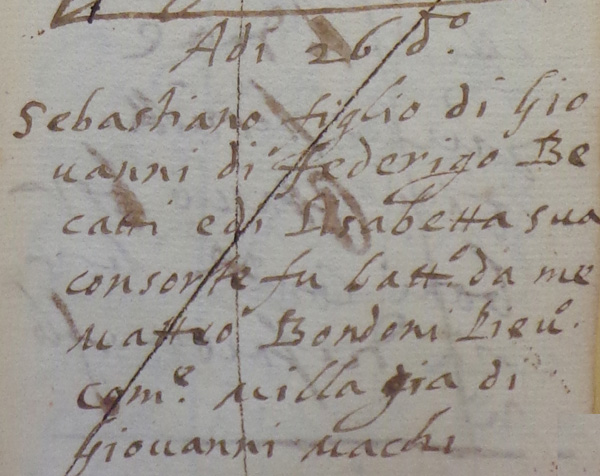 Adi 26 d.º
Sebastiano figlio di Gio
uanni di federigo Be
catti e di Lisabetta sua
consorte fu batt.º da me
Matteo Bondoni Pieu.º
com.e Milla gia di
Giouanni Machi